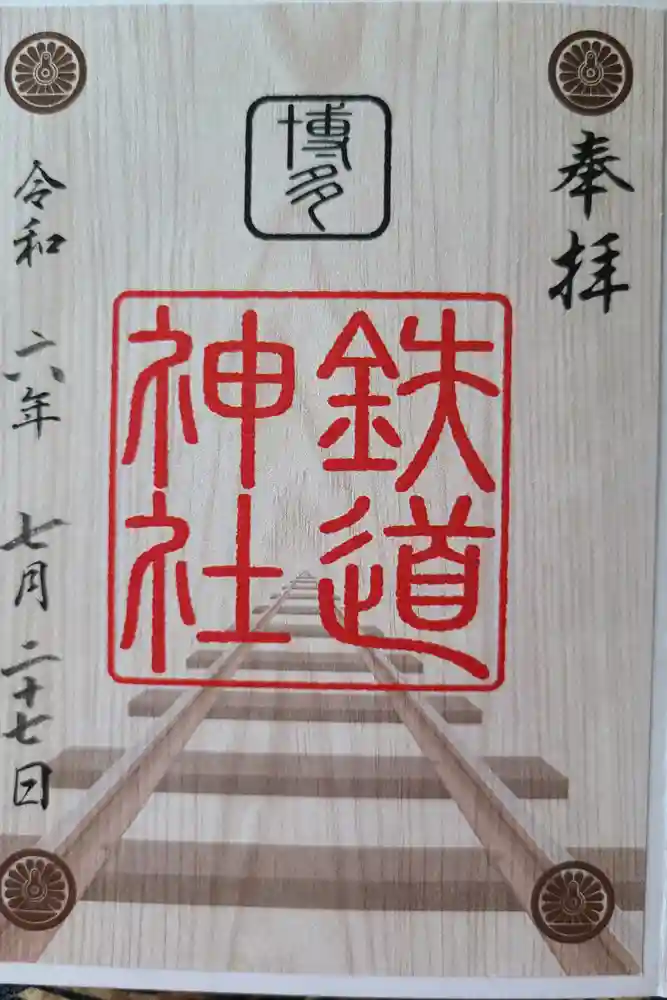 奉拝
博多
鉄道
神社
令和 六年 七月 二十七日